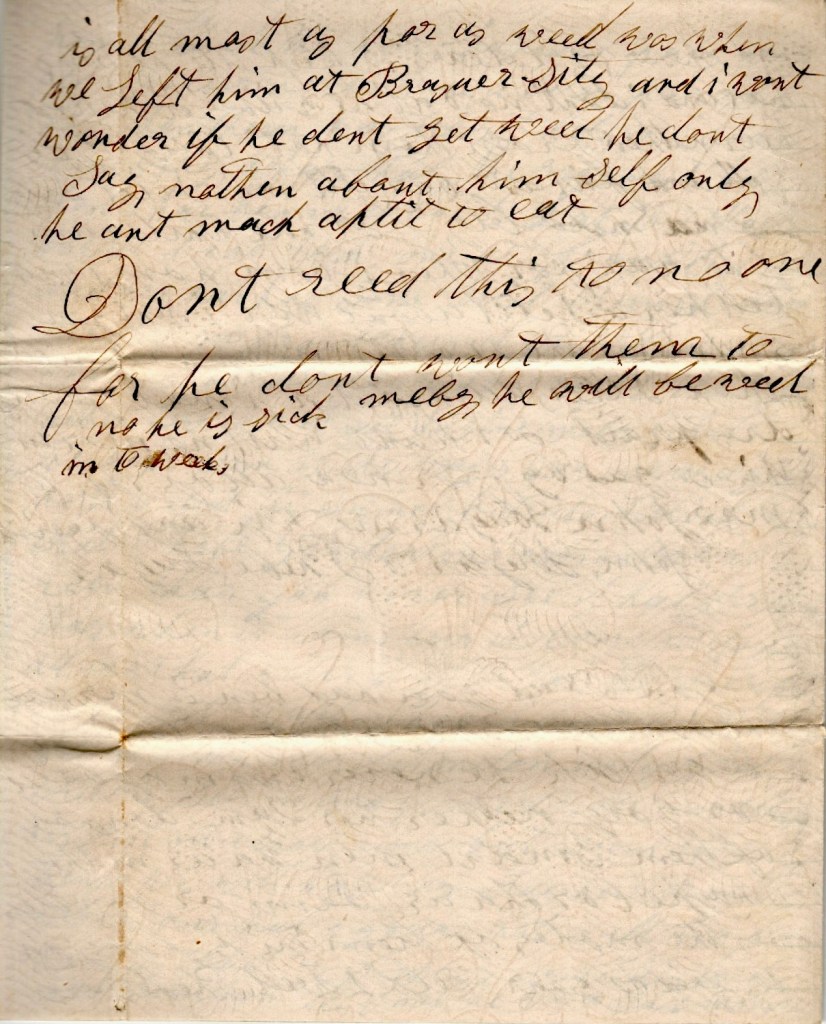 is all most as por as weed was when
we Left him at Brasuer Sity and i wont
wonder if he dent get weel he dont
Say nothen about him self only
he ant mach aptit to eat
Dont reed this to no one
for he dont wont them to
no he is sick meby he will be weel
in to weeks